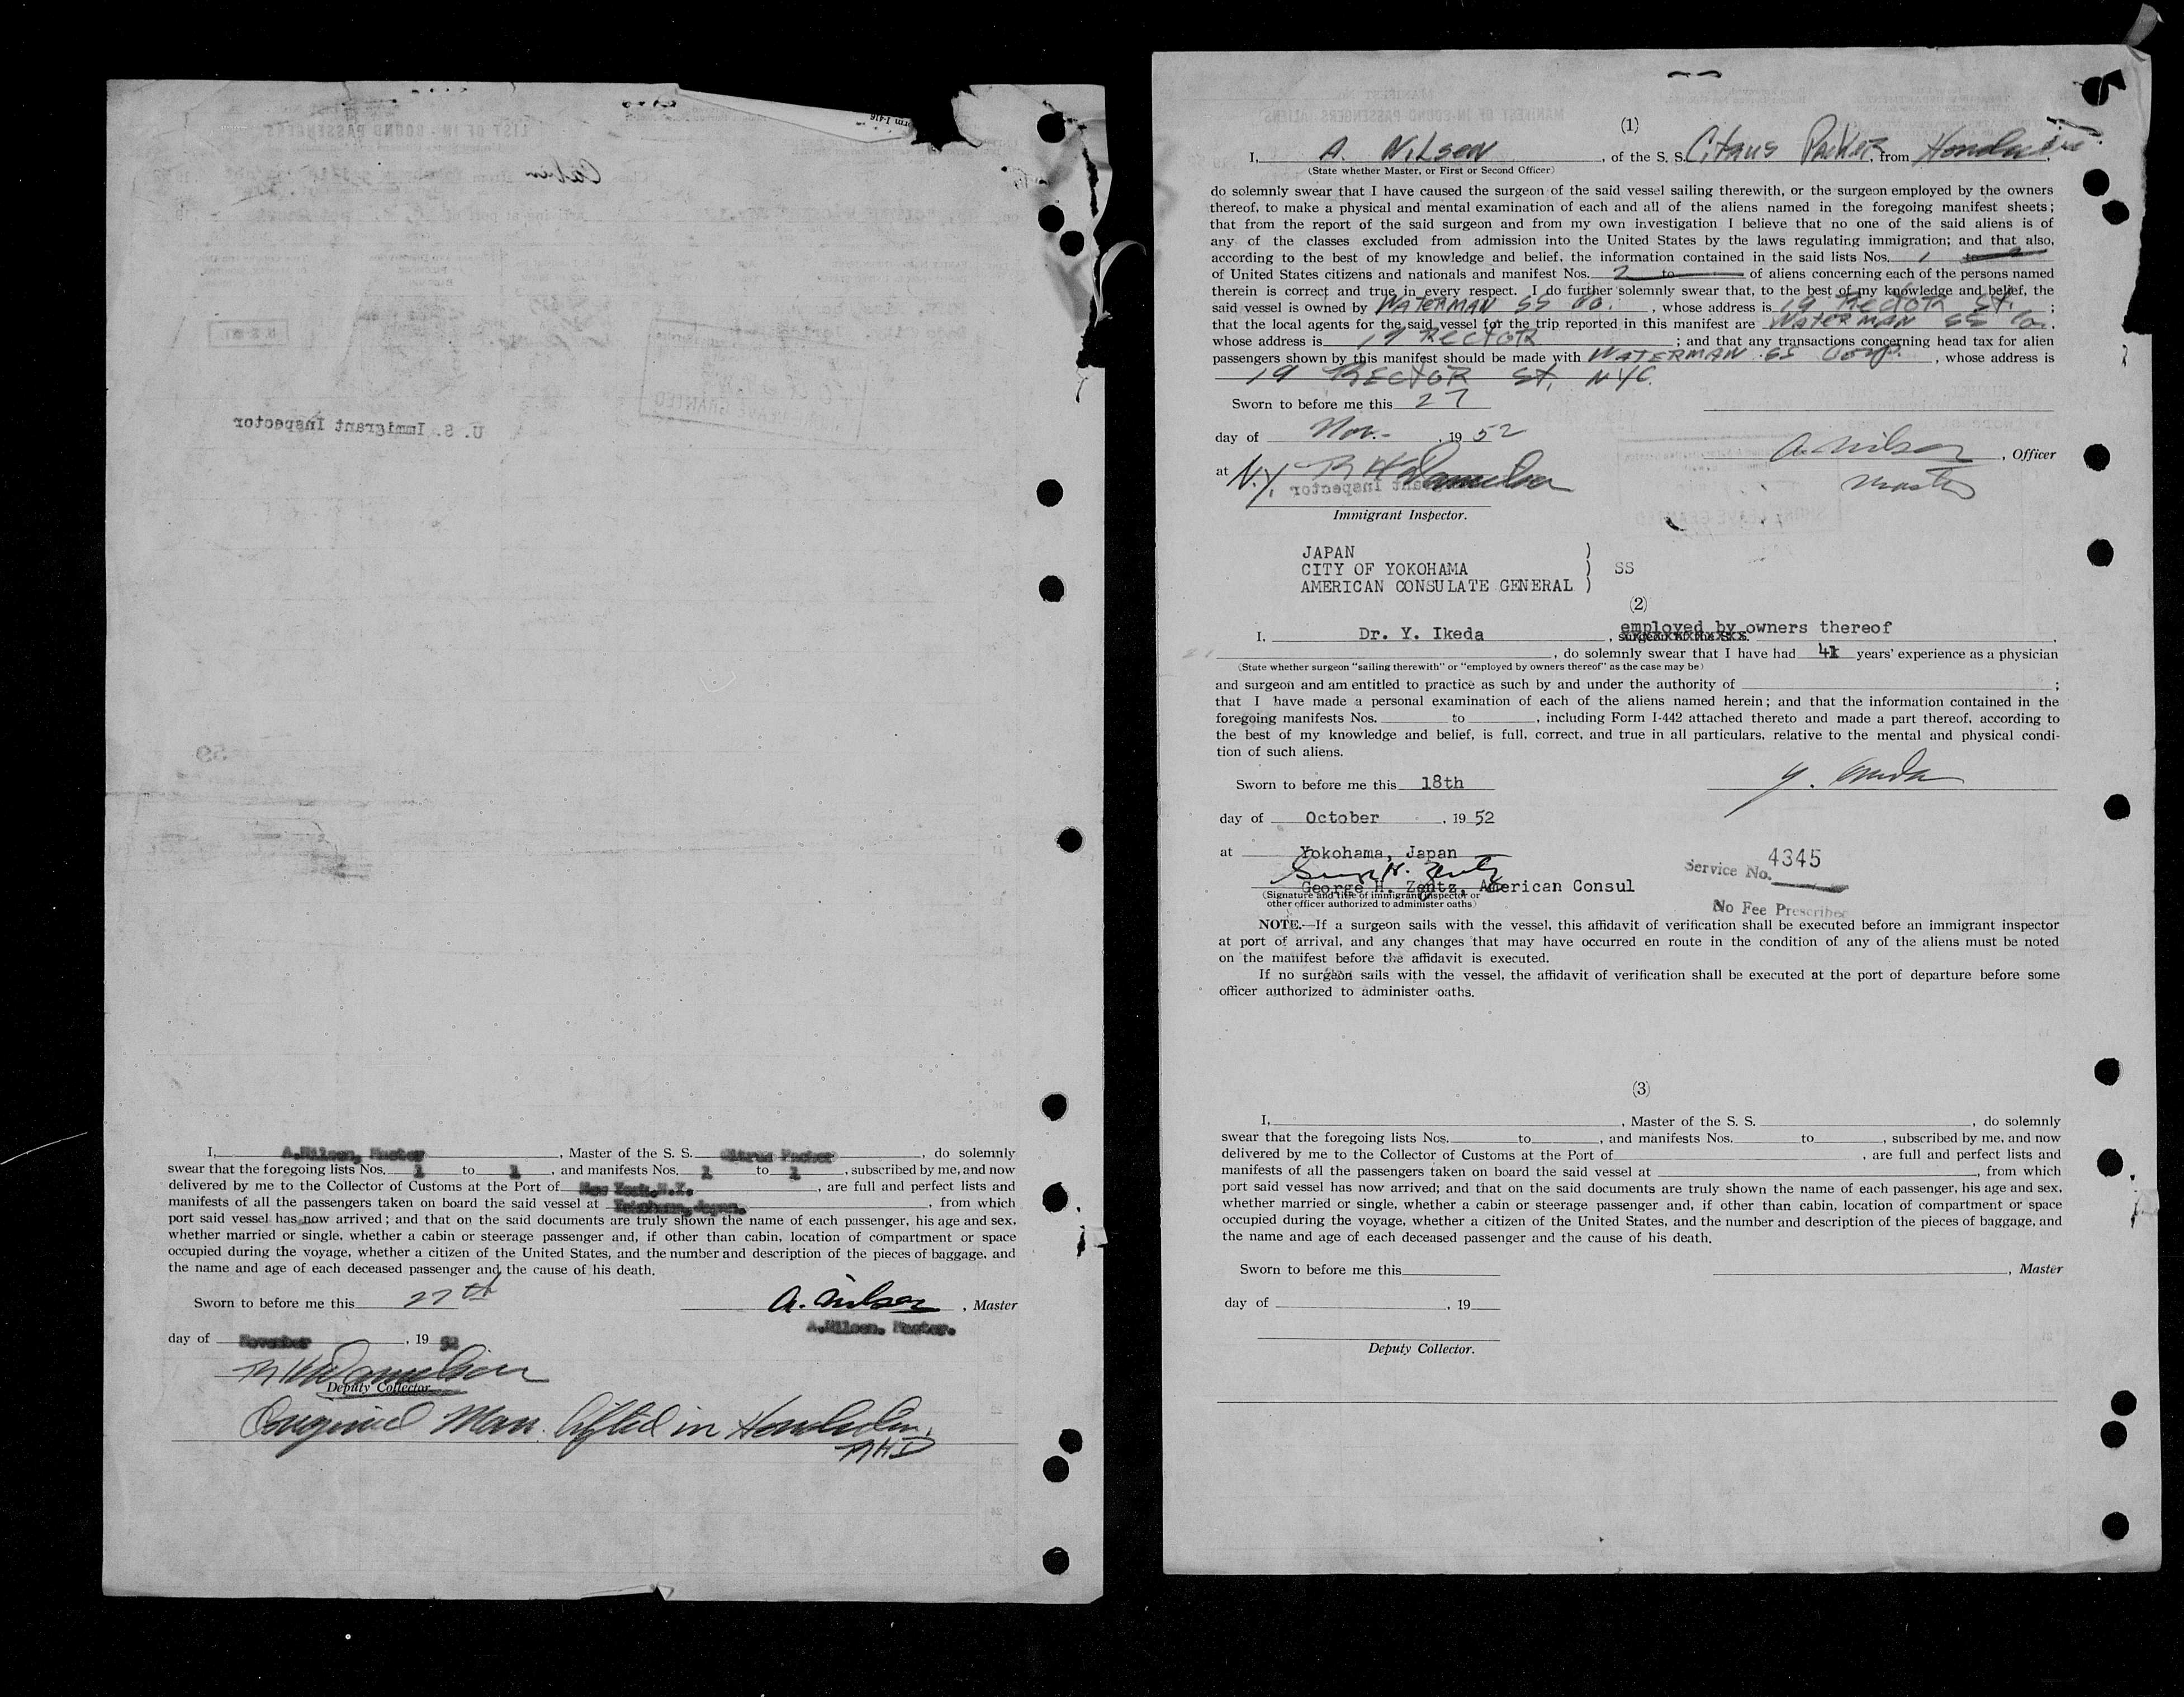 U. S. Immigrant Inspector
I, A.Nilsen, Master, Master of the S. S. Citrus Packer, do solemnly
swear that the foregoing lists Nos. 1 to 1, and manifests Nos. 1 to 1, subscribed by me, and now
delivered by me to the Collector of Customs at the Port of New York,N.Y., are full and perfect lists and
manifests of all the passengers taken on board the said vessel at Yokohama,Japan., from which
port said vessel has now arrived; and that on the said documents are truly shown the name of each passenger, his age and sex,
whether married or single, whether a cabin or steerage passenger and, if other than cabin, location of compartment or space
occupied during the voyage, whether a citizen of the United States, and the number and description of the pieces of baggage, and
the name and age of each deceased passenger and the cause of his death.
Sworn to before me this 27th
A. Nilsen, Master
A.Nilsen. Master.
day of November, 19 52
Deputy Collector.
Original Man. lifted in Honolulu.
RHD
(1)
I, A. Nilsen, of the S. S. Citrus Packer, from Honolulu
(State whether Master, or First or Second Officer)
do solemnly swear that I have caused the surgeon of the said vessel sailing therewith, or the surgeon employed by the owners
thereof, to make a physical and mental examination of each and all of the aliens named in the foregoing manifest sheets;
that from the report of the said surgeon and from my own investigation I believe that no one of the said aliens is of
any of the classes excluded from admission into the United States by the laws regulating immigration; and that also,
according to the best of my knowledge and belief, the information contained in the said lists Nos. 1 to
of United States citizens and nationals and manifest Nos. 2 to of aliens concerning each of the persons named
therein is correct and true in every respect. I do further solemnly swear that, to the best of my knowledge and belief, the
said vessel is owned by Waterman SS Co., whose address is 19 Rector St.;
that the local agents for the said vessel for the trip reported in this manifest are Waterman SS Co.
whose address is 19 Rector; and that any transactions concerning head tax for alien
passengers shown by this manifest should be made with Waterman SS Corp., whose address is
19 Rector St. NYC.
Sworn to before me this 27
day of Nov.-, 19 52
A. Nilsen, Officer
Master
at N.Y.
Immigrant Inspector
Immigrant Inspector.
JAPAN )
CITY OF YOKOHAMA ) SS
AMERICAN CONSULATE GENERAL )
(2)
employed by owners thereof
I. Dr. Y. Ikeda, surgeon of the S. S.
, do solemnly swear that I have had 41 years' experience as a physician
(State whether surgeon "sailing therewith" or "employed by owners thereof" as the case may be)
and surgeon and am entitled to practice as such by and under the authority of ;
that I have made a personal examination of each of the aliens named herein; and that the information contained in the
foregoing manifests Nos. to , including Form I-442 attached thereto and made a part thereof, according to
the best of my knowledge and belief, is full, correct, and true in all particulars, relative to the mental and physical condi-
tion of such aliens.
Sworn to before me this 18th
Y. Ikeda
day of October, 19 52
at Yokohama, Japan
George H. Zentz
George H. Zentz, American Consul
(Signature and title of immigrant inspector or
other officer authorized to administer oaths)
Service No. 4345
No Fee Prescribed
NOTE.—If a surgeon sails with the vessel, this affidavit of verification shall be executed before an immigrant inspector
at port of arrival, and any changes that may have occurred en route in the condition of any of the aliens must be noted
on the manifest before the affidavit is executed.
If no surgeon sails with the vessel, the affidavit of verification shall be executed at the port of departure before some
officer authorized to administer oaths.
(3)
I, , Master of the S. S. , do solemnly
swear that the foregoing lists Nos. to , and manifests Nos. to , subscribed by me, and now
delivered by me to the Collector of Customs at the Port of , are full and perfect lists and
manifests of all the passengers taken on board the said vessel at , from which
port said vessel has now arrived; and that on the said documents are truly shown the name of each passenger, his age and sex,
whether married or single, whether a cabin or steerage passenger and, if other than cabin, location of compartment or space
occupied during the voyage, whether a citizen of the United States, and the number and description of the pieces of baggage, and
the name and age of each deceased passenger and the cause of his death.
Sworn to before me this
, Master
day of , 19
Deputy Collector.